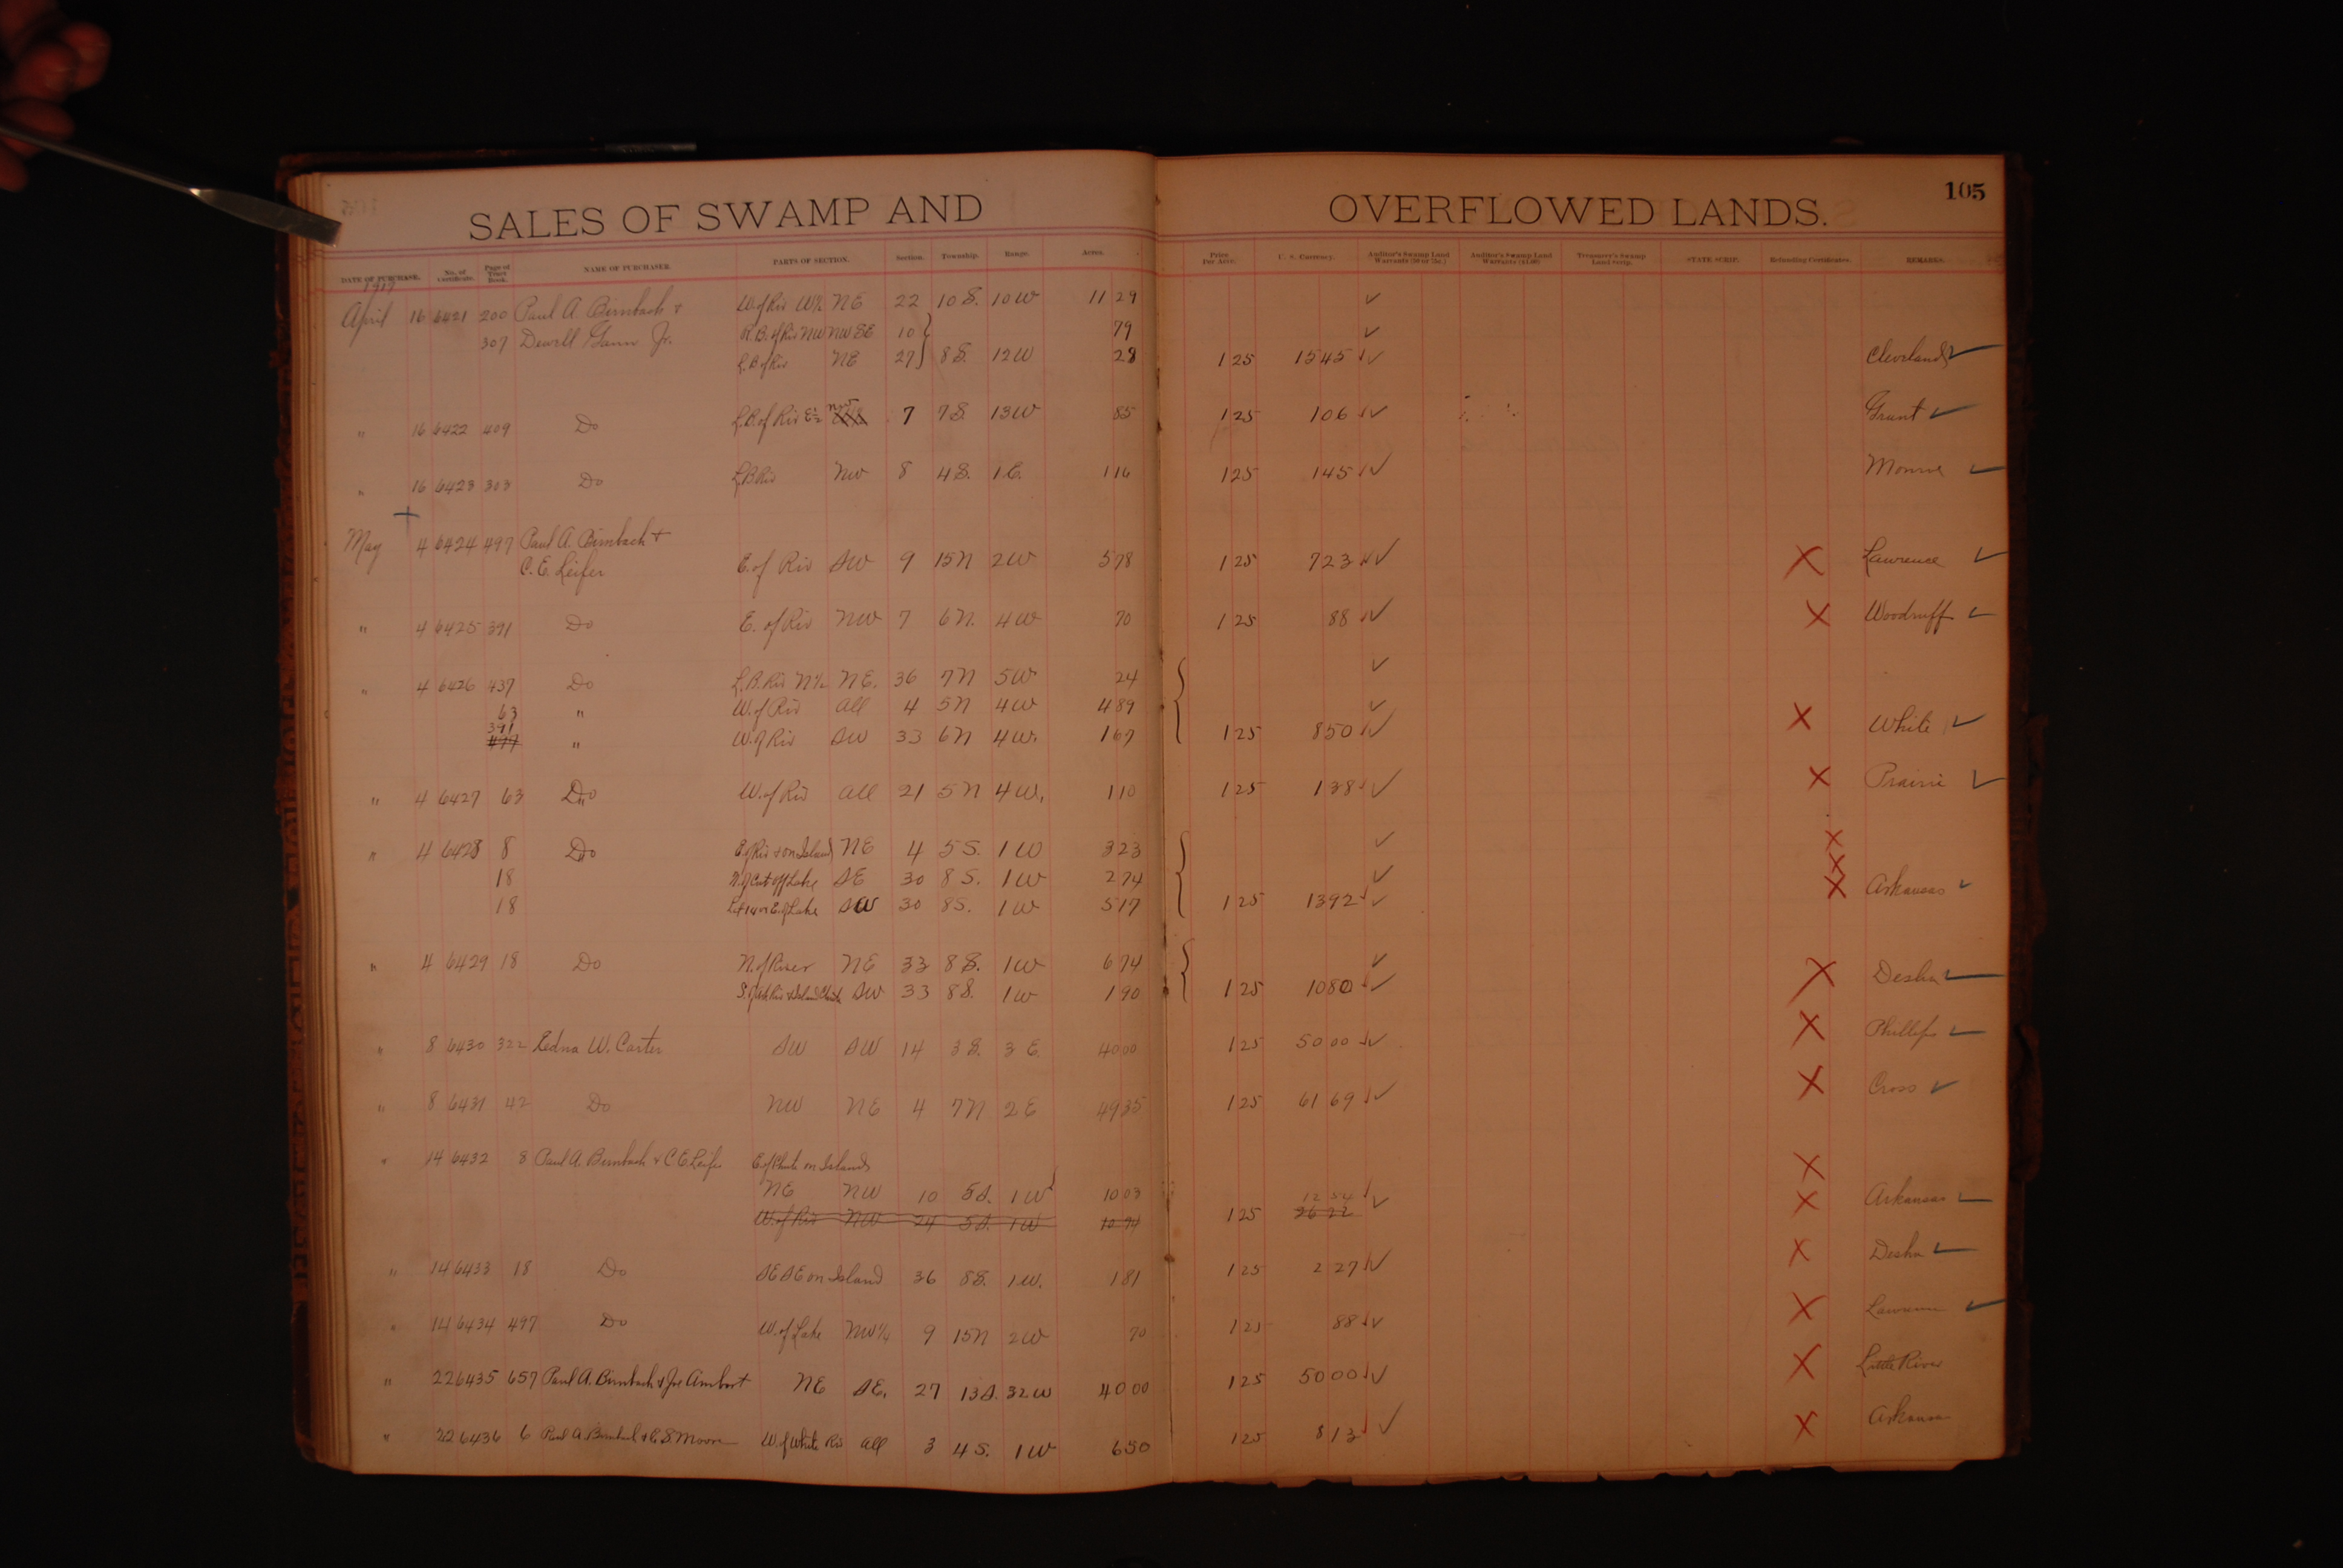 SALES OF SWAMP AND OVERFLOWED LANDS. 105
DATE OF PURCHASE. No. of Certificate. Page of Tract Book. NAME OF PURCHASER. PARTS OF SECTION. Section. Township. Range. Acres. Price Per Acre. U. S. Currency. Auditor's Swamp Land Warrants (50 or 75c.) Auditor's Swamp Land Warrants ($1.00) Treasurer's Swamp Land Scrip. STATE SCRIP. Refunding Certificates. REMARKS.
1917
April 16 6421 200 Paul A. Birnbach + W. of Riv W½ NE 22 10 S. 10 W 11 29 ✓
307 Dewell Gann Jr. R.B. of Riv NW NW SE 10 } 79 ✓
L.B. of Riv NE 27 } 8 S. 12 W 28 1 25 15 45 ✓ ✓ Cleveland ✓
" 16 6422 409 Do L.B. of Riv E½ NW 7 7 S 13 W 85 1 25 1 06 ✓ ✓ Grant ✓
" 16 6423 303 Do L.B. Riv NW 8 4 S. 1 E. 1 16 1 25 1 45 ✓ ✓ Monroe ✓
+
May 4 6424 497 Paul A. Birnbach +
C. E. Leifer E. of Riv SW 9 15 N 2 W 5 78 1 25 7 23 ✓ ✓ X Lawrence ✓
" 4 6425 391 Do E. of Riv NW 7 6 N. 4 W 70 1 25 88 ✓ ✓ X Woodruff ✓
" 4 6426 437 Do L.B. Riv N½ NE. 36 7 N 5 W 24 ✓
63 " W. of Riv All 4 5 N 4 W 4 89 ✓
391
" W. of Riv SW 33 6 N 4 W. 1 67 1 25 8 50 ✓ ✓ X White ✓
" 4 6427 63 Do W. of Riv All 21 5 N 4 W. 1 10 1 25 1 38 ✓ ✓ X Prairie ✓
" 4 6428 8 Do E of Riv + on Island NE 4 5 S. 1 W 3 23 ✓ X
18 N. of Cut off Lake SE 30 8 S. 1 W 2 74 ✓ X
18 Lot 14 or E. of Lake SW 30 8 S. 1 W 5 17 1 25 13 92 ✓ ✓ X Arkansas ✓
" 4 6429 18 Do N. of River NE 33 8 S. 1 W 6 74 ✓
SW 33 8 S. 1 W 1 90 1 25 10 80 ✓ ✓ X Desha ✓
" 8 6430 322 Zedna W. Carter SW SW 14 3 S. 3 E. 40 00 1 25 50 00 ✓ ✓ X Phillips ✓
" 8 6431 42 Do NW NE 4 7 N 2 E 49 35 1 25 61 69 ✓ ✓ X Cross ✓
" 14 6432 8 Paul A. Birnbach + C. E. Leifer E. of Chute on Islands X
NE NW 10 5 S. 1 W 10 03 12 54 ✓ ✓ X Arkansas ✓
W. of Riv NW 24 5 S. 1 W 10 94 1 25 26 22
" 14 6433 18 Do SE SE on Island 36 8 S. 1 W. 1 81 1 25 2 27 ✓ ✓ X Desha ✓
" 14 6434 497 Do W. of Lake NW¼ 9 15 N 2 W 70 1 25 88 ✓ ✓ X Lawrence ✓
" 22 6435 657 Paul A. Birnbach + Joe NE SE. 27 13 S. 32 W 40 00 1 25 50 00 ✓ ✓ X Little River
" 22 6436 6 Paul A. Birnbach + C. S. Moore W. of White Riv All 3 4 S. 1 W 6 50 1 25 8 13 ✓ ✓ X Arkansas